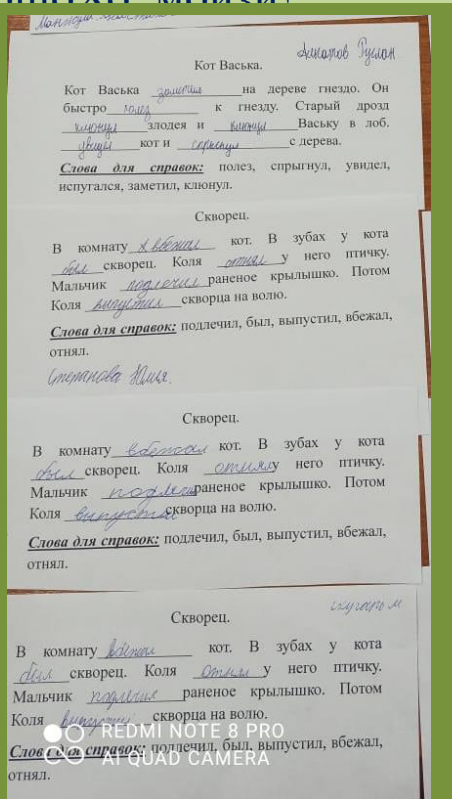 Кот Васька.
Кот Васька заметил на дереве гнездо. Он
быстро полез к гнезду. Старый дрозд
клюнул злодея и клюнул Ваську в лоб.
увидел кот и спрыгнул с дерева.
Слова для справок: полез, спрыгнул, увидел,
испугался, заметил, клюнул.
Скворец.
В комнату вбежал кот. В зубах у кота
был скворец. Коля отнял у него птичку.
Мальчик подлечил раненое крылышко. Потом
Коля выпустил скворца на волю.
Слова для справок: подлечил, был, выпустил, вбежал,
отнял.
Степанова Юлия.
Скворец.
В комнату вбежал кот. В зубах у кота
был скворец. Коля отнял у него птичку.
Мальчик подлечил раненое крылышко. Потом
Коля выпустил скворца на волю.
Слова для справок: подлечил, был, выпустил, вбежал,
отнял.
Скворец.
В комнату вбежал кот. В зубах у кота
был скворец. Коля отнял у него птичку.
Мальчик подлечил раненое крылышко. Потом
Коля выпустил скворца на волю.
REDMI NOTE 8 PRO
Слова для справок: подлечил, был, выпустил, вбежал,
AI QUAD CAMERA
отнял.